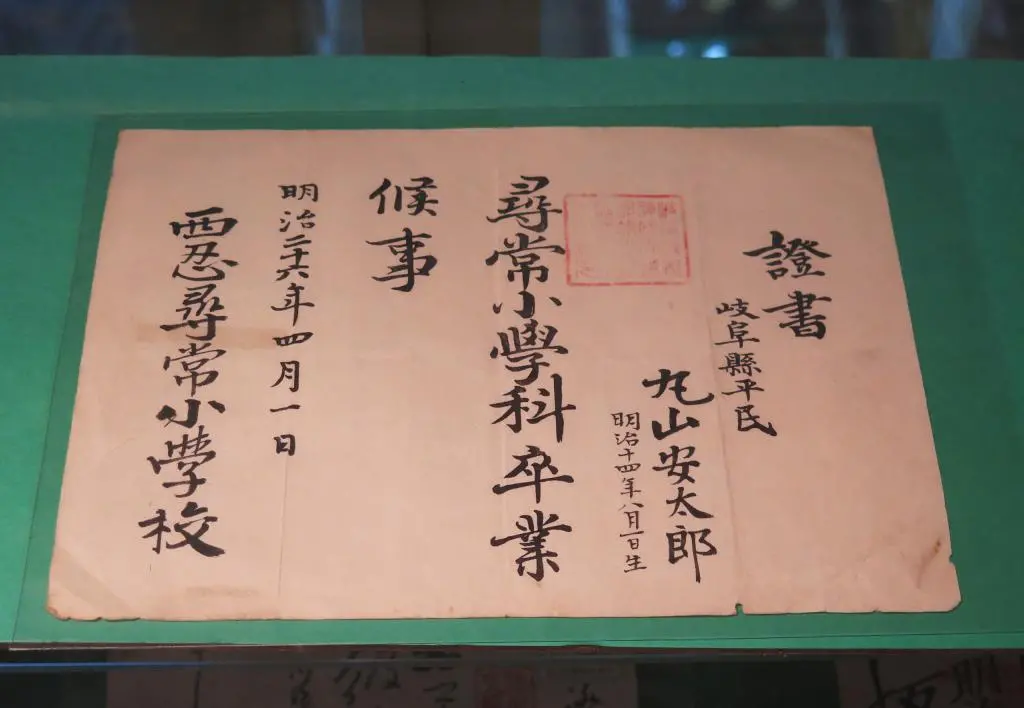 證書
岐阜縣平民
丸山安太郎
明治十四年八月一日生
尋常小學科卒業
候事
明治二十六年四月一日
西忍尋常小學校